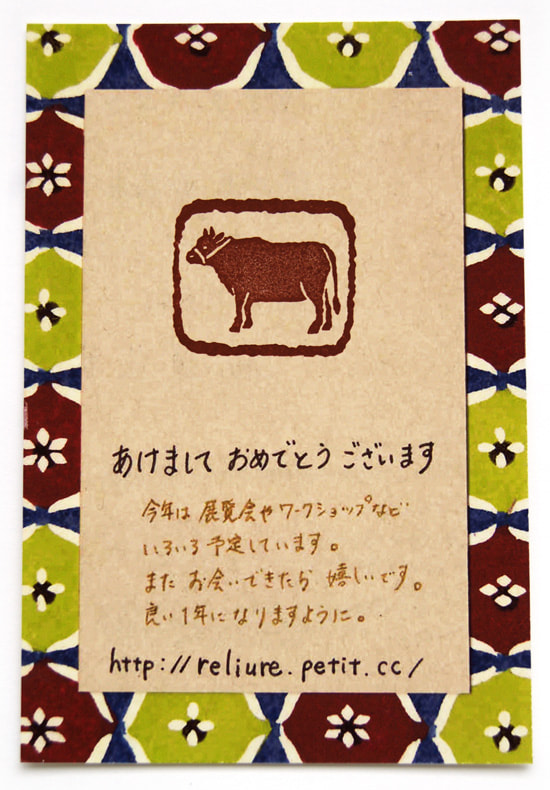 あけまして おめでとう ございます
今年は 展覧会や ワークショップなど
いろいろ 予定しています。
また お会いできたら 嬉しいです。
良い1年になりますように。
http://reliure.petit.cc/